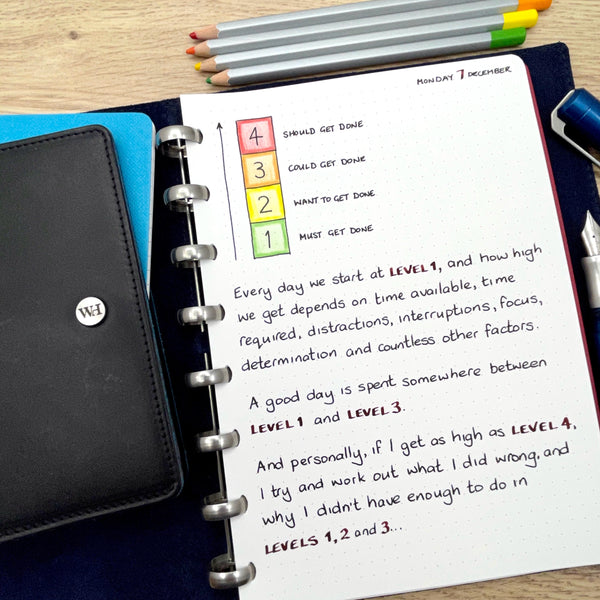 MONDAY 7 DECEMBER
4 SHOULD GET DONE
3 COULD GET DONE
2 WANT TO GET DONE
1 MUST GET DONE
Every day we start at LEVEL 1, and how high
we get depends on time available, time
required, distractions, interruptions, focus,
determination and countless other factors.
A good day is spent somewhere between
LEVEL 1 and LEVEL 3.
And personally, if I get as high as LEVEL 4,
I try and work out what I did wrong, and
why I didn't have enough to do in
LEVELS 1, 2 and 3...